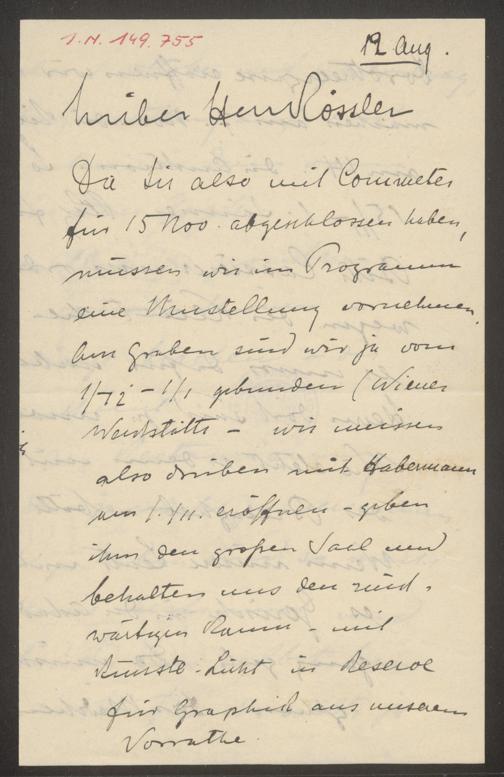 I.N. 149.755
12 Aug.
Lieber Herr Rössler
Da Sie also mit Commeter
für 15 Nov. abgeschlossen haben,
müssen wir im Programm
eine Umstellung vornehmen.
Am Graben sind wir ja vom
1/12 – 1/1 gebunden (Wiener
Werkstätte – wir müssen
also drüben mit Habermann
am 1. XII. eröffnen – geben
ihm den großen Saal und
behalten uns den rück-
wärtigen Raum – mit
Künstl. Licht in Reserve
für Graphik aus unserem
Vorrathe.